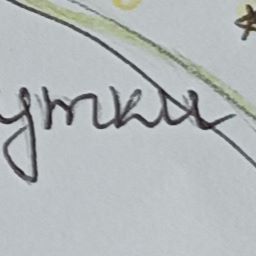 утки